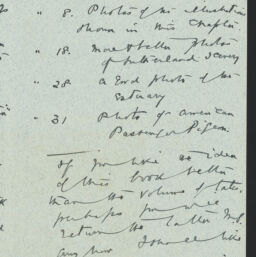 " 8. Photos of the illustrations
shown in this chapter
" 18. more & better photos
of Sutherland Scenery
" 28 a good photo of the
Estuary
" 31 photo of American
Passenger Pigeon.
If you like the idea
of this book better
than the volume of tales,
perhaps you will
return the latter
any how